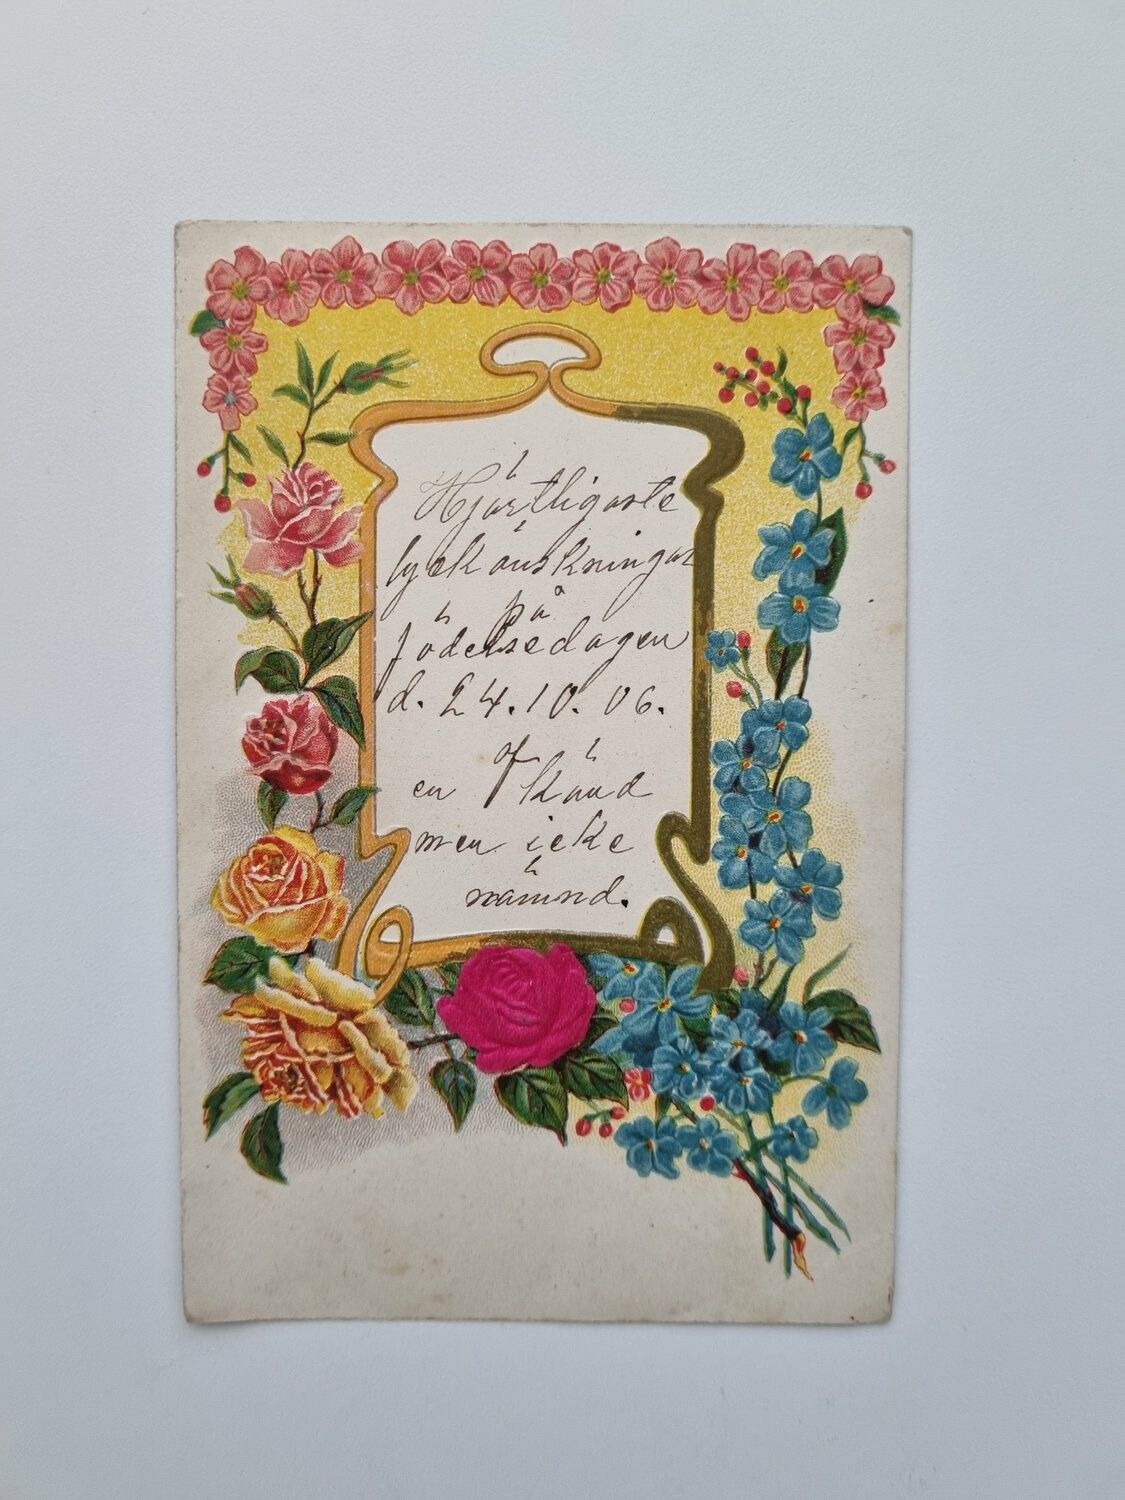 Hjärtligaste
lyckönskningar
på
födelsedagen
d. 24.10.06.
af
en känd
men icke
nämnd.